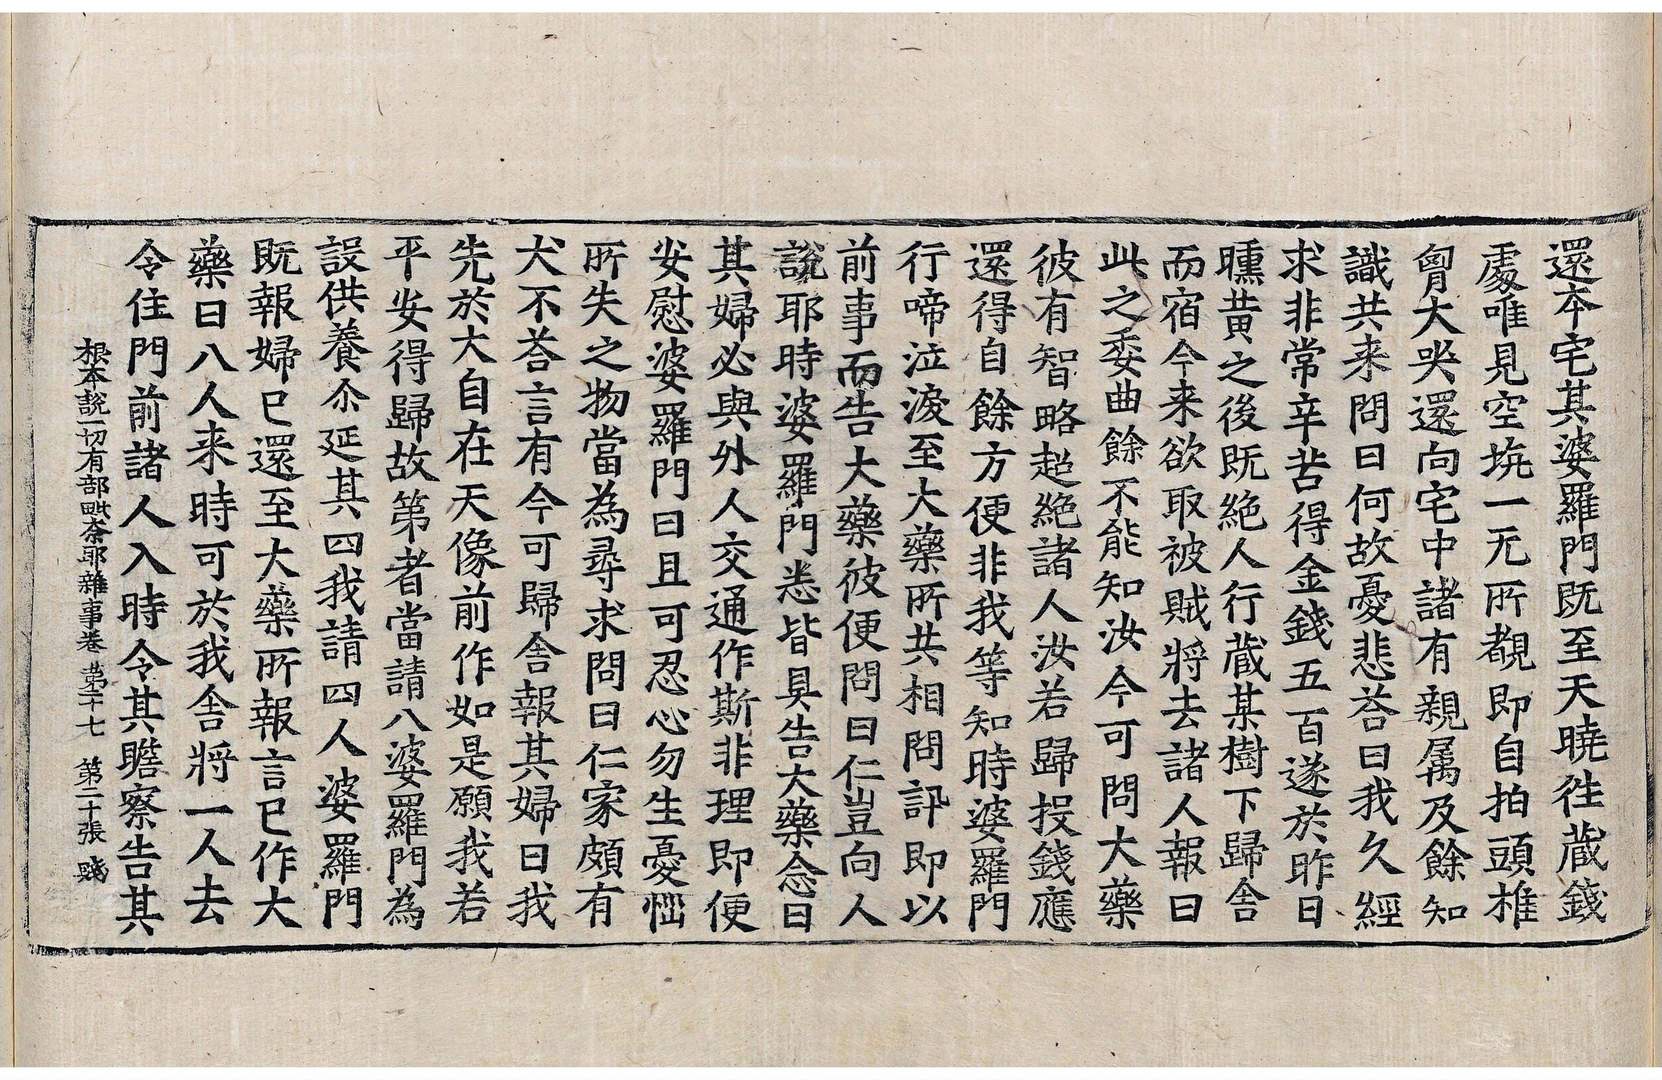 還本宅其婆羅門既至天曉往蔵錢
處唯見空坑一无所覩即自拍頭椎
𦚾大哭還向宅中諸有親属及餘知
識共来問曰何故憂悲荅曰我久經
求非常辛苦得金錢五百遂於昨日
曛黄之後既絶人行蔵某樹下歸舎
而宿今来欲取被賊將去諸人報曰
此之委曲餘不能知汝今可問大藥
彼有智略超絶諸人汝若歸投錢應
還得自餘方便非我等知時婆羅門
行啼泣淚至大藥所共相問訊即以
前事而告大藥彼便問曰仁豈向人
說耶時婆羅門悉皆具告大藥念曰
其婦必與外人交通作斯非理即便
安慰婆羅門曰且可忍心勿生憂惱
所失之物當為尋求問曰仁家頗有
犬不荅言有今可歸舎報其婦曰我
先於大自在天像前作如是願我若
平安得歸故第者當請八婆羅門為
設供養尒延其四我請四人婆羅門
既報婦已還至大藥所報言已作大
藥曰八人来時可於我舎將一人去
令住門前諸人入時令其瞻察告其
根本說一切有部毗奈耶雜事卷第二十七 第二十張 賤